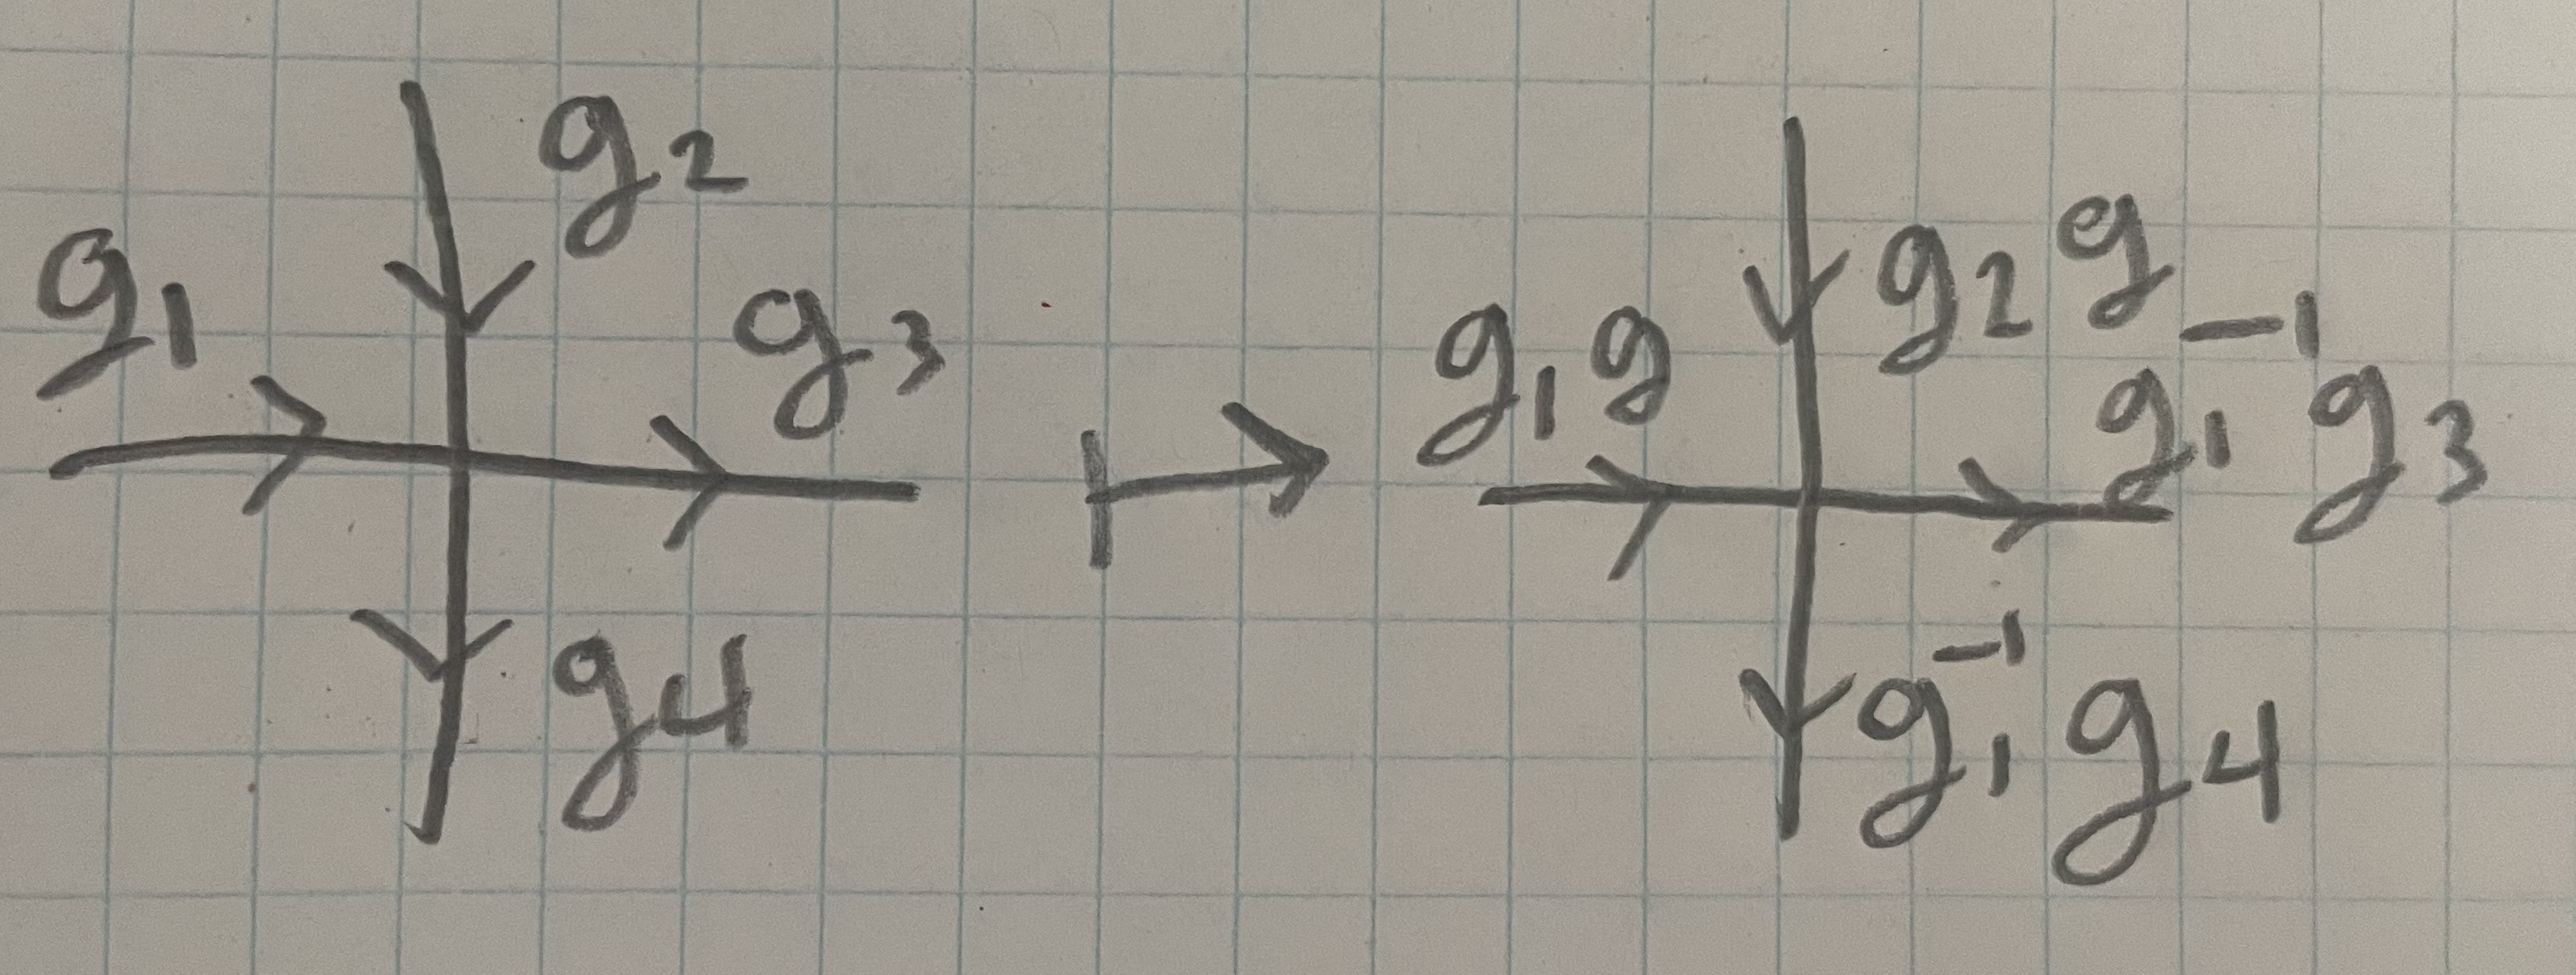 g₂
g₁
g₃
g₄
↦
g₂g
g₁g
g₁⁻¹g₃
g₁⁻¹g₄